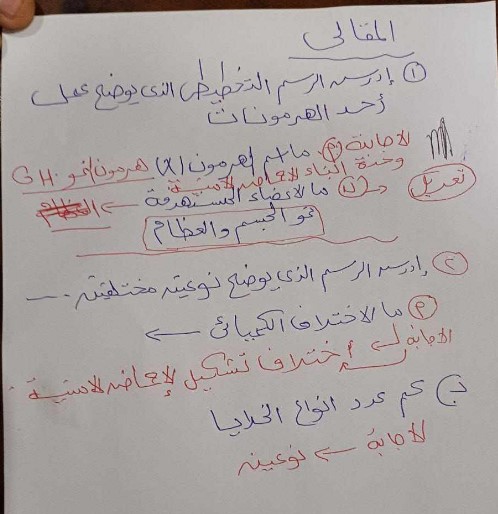 المقالى
① إدرس الرسم التخطيطى الذى يوضح عمل
أحد الهرمونات
الاجابة (م) ما اسم الهرمون (X) هرمون النمو GH
وحدة البناء الاحماض الامينية
تعديل (ن) ما الاعضاء المستهدفة ← العظام
نمو الجسم والعظام
② إدرس الرسم الذى يوضح نوعين مختلفين ....
(م) ما الاختلاف الكيميائى ←
الاجابة اختلاف تشكيل الاحماض الامينية
ب) كم عدد انواع الخلايا
الاجابة ← نوعين